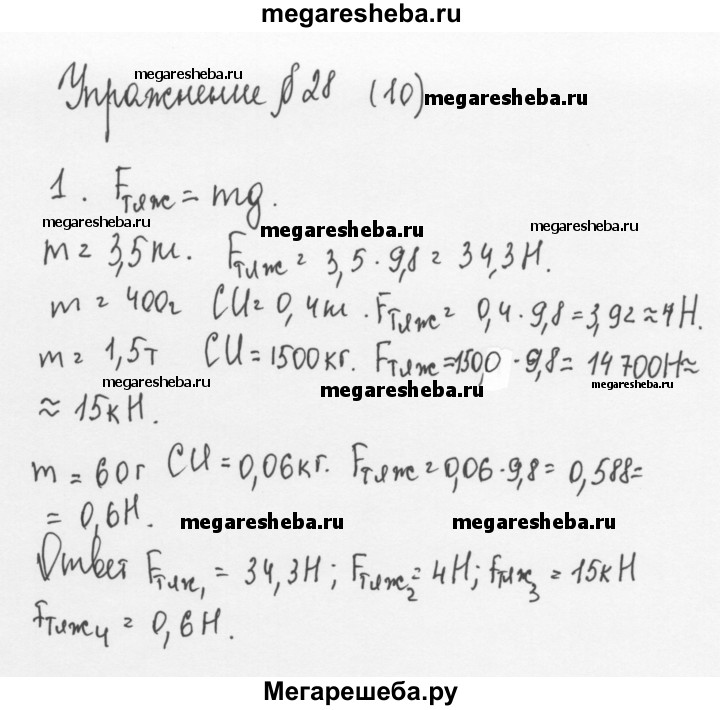 megaresheba.ru
Упражнение § 28 (10)
megaresheba.ru
megaresheba.ru
1. Fтяж = mg.
megaresheba.ru
megaresheba.ru
megaresheba.ru
m = 3,5 т. Fтяж = 3,5 · 9,8 = 34,3 Н.
m = 400г СИ = 0,4 т. Fтяж = 0,4 · 9,8 = 3,92 ≈ 4 Н.
m = 1,5т СИ = 1500 кг. Fтяж = 1500 · 9,8 = 14 700Н ≈
megaresheba.ru
megaresheba.ru
megaresheba.ru
≈ 15 кН.
m = 60г СИ = 0,06 кг. Fтяж = 0,06 · 9,8 = 0,588 =
= 0,6 Н.
megaresheba.ru
megaresheba.ru
Ответ Fтяж1 = 34,3 Н; Fтяж2 = 4Н; Fтяж3 = 15 кН
Fтяж4 = 0,6 Н.
Мегарешеба.ру